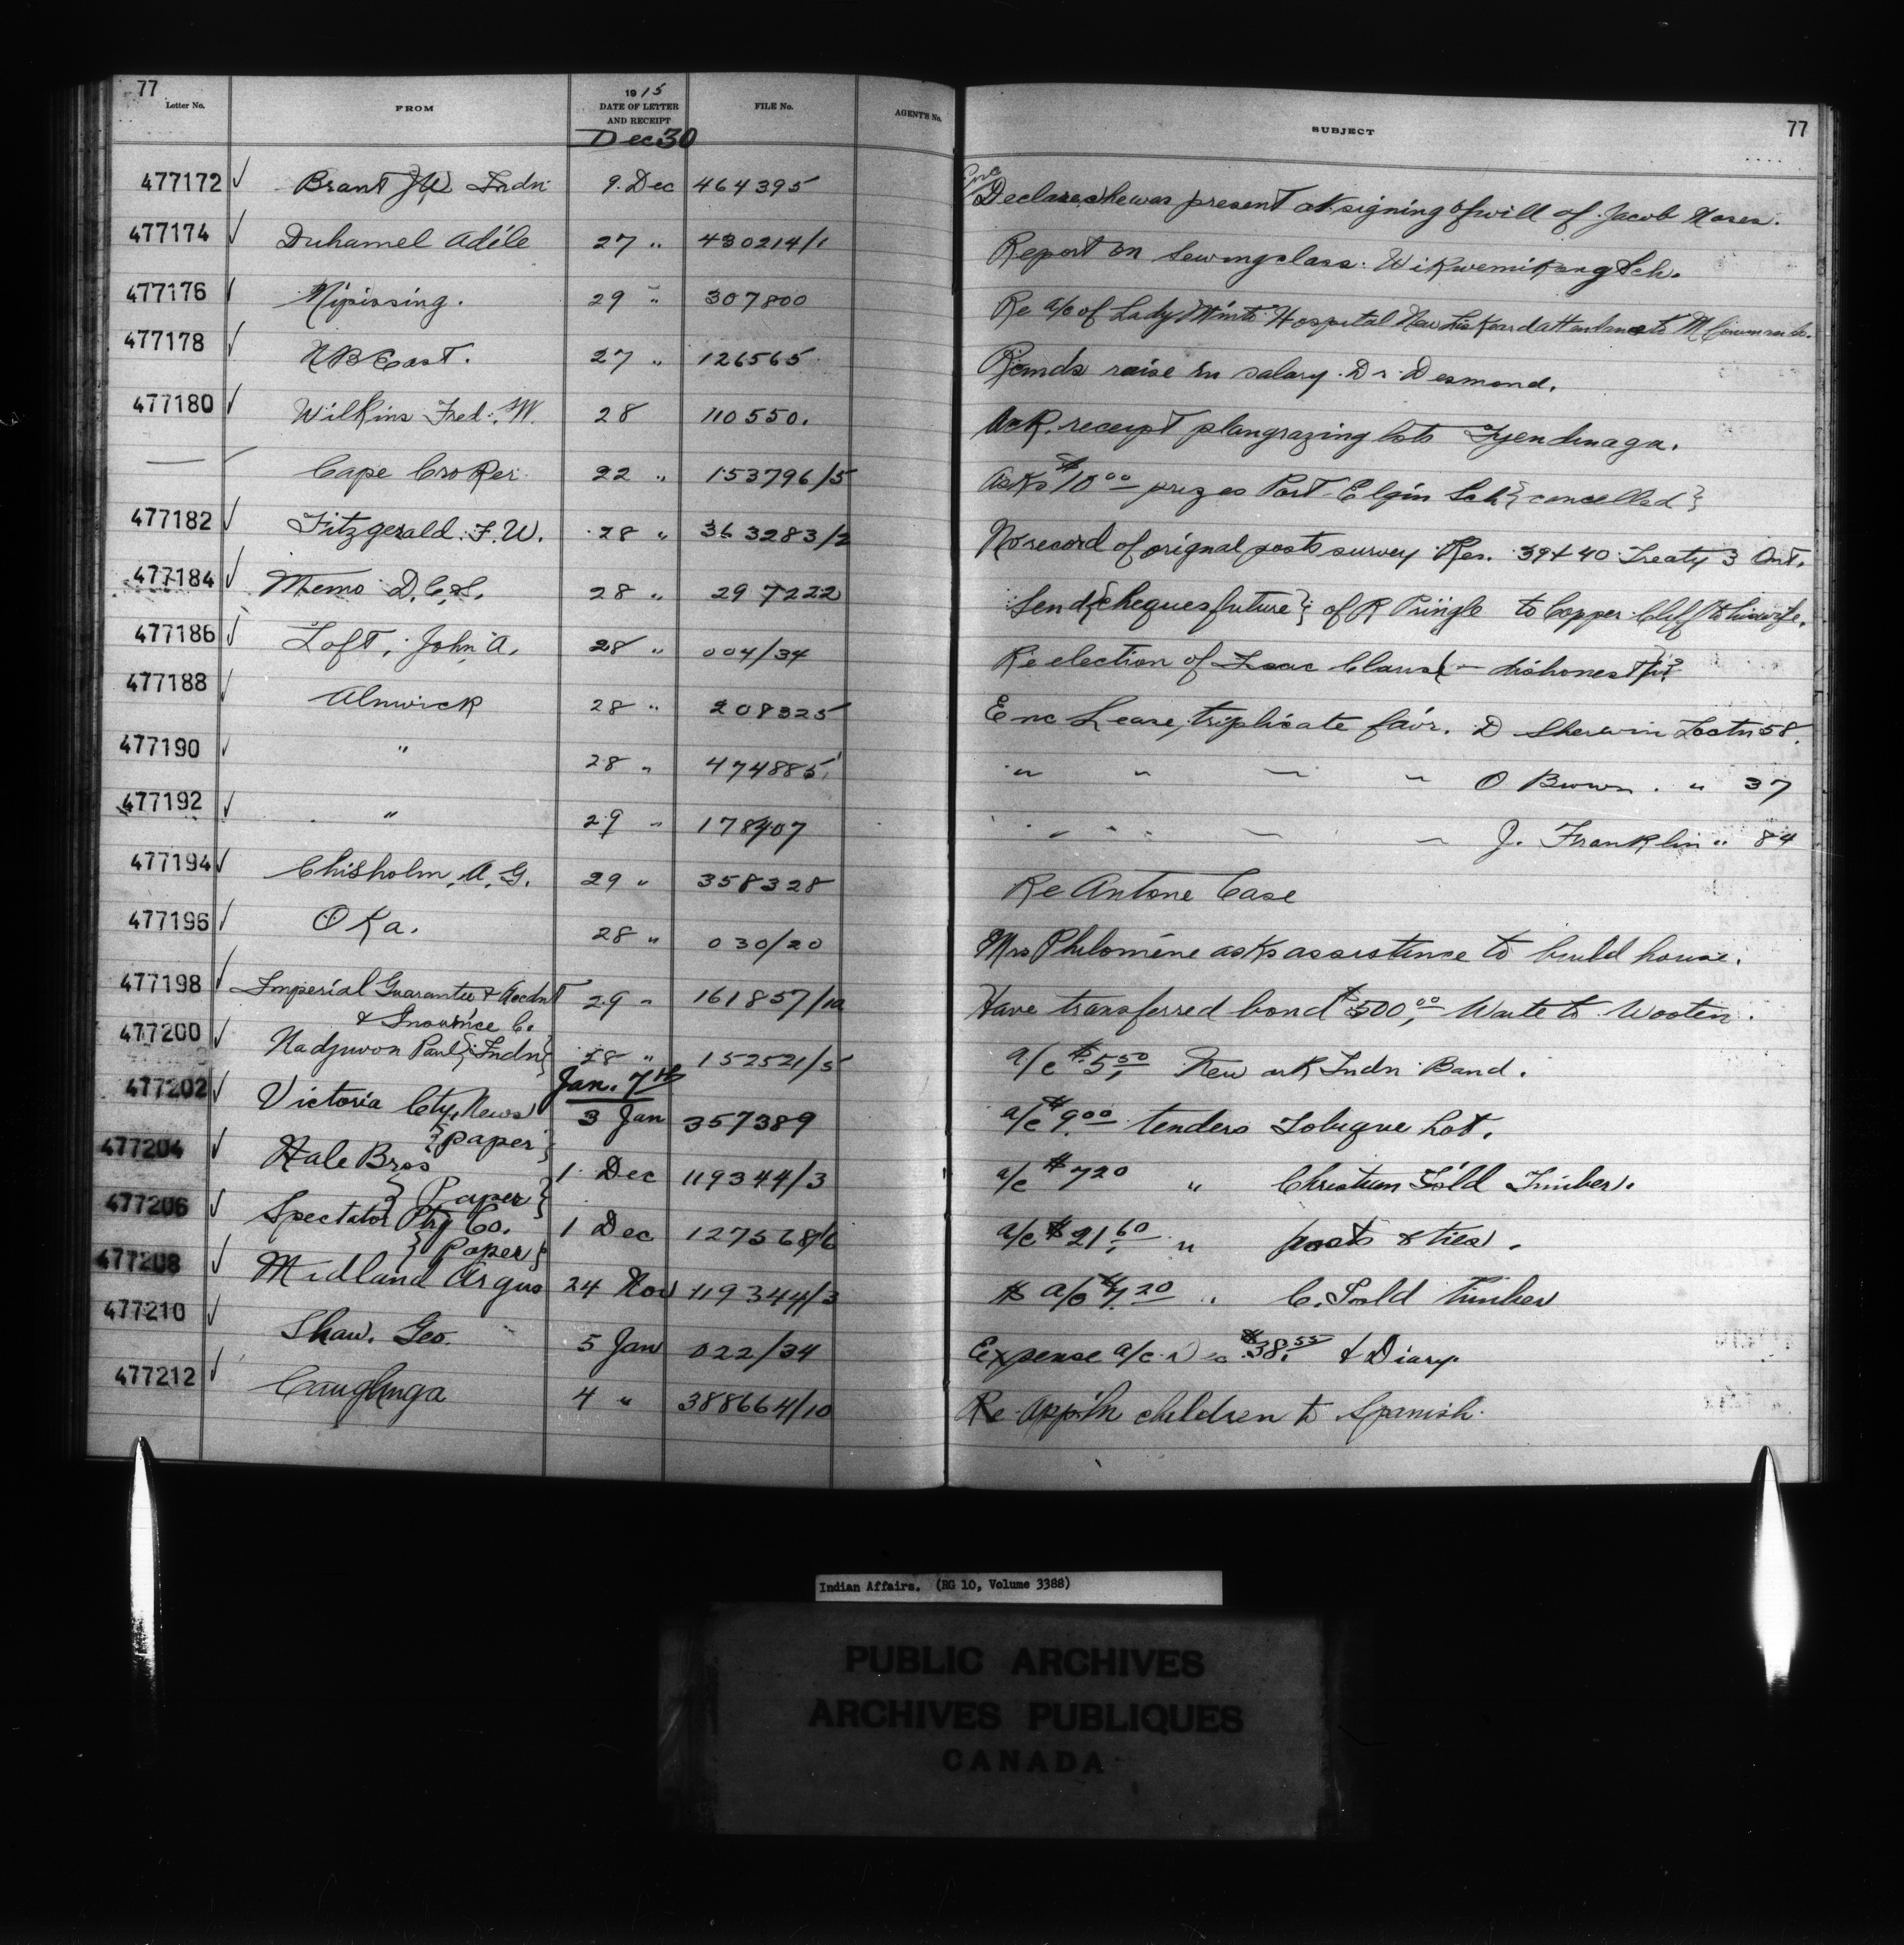 77
Letter No. FROM 1915 DATE OF LETTER AND RECEIPT FILE No. AGENT'S No. SUBJECT 77
Dec 30
477172 √ Brant J W Indn 9 Dec 464395 Enc Declares he was present at signing of will of Jacob Moses.
477174 √ Duhamel Adéle 27 " 430214/1 Report on Sewing class. Wikwemikong Sch.
477176 √ Nipissing. 29 " 307800 Re a/c of Lady Minto Hospital New Liskeard attendance to
477178 √ N B East. 27 " 126565 Rcmds raise in salary Dr. Desmond.
477180 √ Wilkins Fred. W. 28 110550. Ack. receipt plan grazing lots Tyendinaga.
— Cape Croker 22 " 153796/5 Asks $10 00 prizes Port Elgin Sch {cancelled}
477182 √ Fitzgerald F. W. 28 " 363283/2 No record of orignal posts survey Res. 39 & 40 Treaty 3 Ont.
477184 √ Memo D. C. S. 28 " 297222 Send {cheques future} of R Pringle to Copper Cliff to his wife.
477186 √ Loft, John A. 28 " 004/34 Re election of Isaac Claus (— dishonest
477188 √ Alnwick 28 " 208325 Enc Lease, triplicate favr. D Sherwin Lot 58.
477190 √ " 28 " 474885 " " " " O Brown . " 37
477192 √ " 29 " 178407 " " " " J. Franklin " 84
477194 √ Chisholm, A. G. 29 " 358328 Re Antone Case
477196 √ Oka. 28 " 030/20 Mrs Philoméne asks assistance to build house.
477198 √ Imperial Guarantee & Accdnt 29 " 161857/1a Have transferred bond $500, 00 Waite to Wooten.
& Insurnce Co.
477200 √ Nadjiwon Paul {Indn} 28 " 152521/5 a/c $5, 50 Newark Indn Band.
Jan. 7th
477202 √ Victoria Cty. News 3 Jan 357389 a/c $9 00 tenders Tobique hot.
{paper}
477204 √ Hale Bros 1 Dec 119344/3 a/c $7 20 " Christian Isld Timber.
{Paper}
477206 √ Spectator Ptg Co. 1 Dec 127568/6 a/c $21, 60 " posts & ties.
{Paper}
477208 √ Midland Argus 24 Nov 119344/3 a/c $7. 20 " C. Isld Timber
477210 √ Shaw. Geo. 5 Jan 022/34 Expense a/c Dec $38. 55 & Diary.
477212 √ Caughnga 4 " 388664/10 Re app'ln children to Spanish.
Indian Affairs. (RG 10, Volume 3388)
PUBLIC ARCHIVES
ARCHIVES PUBLIQUES
CANADA